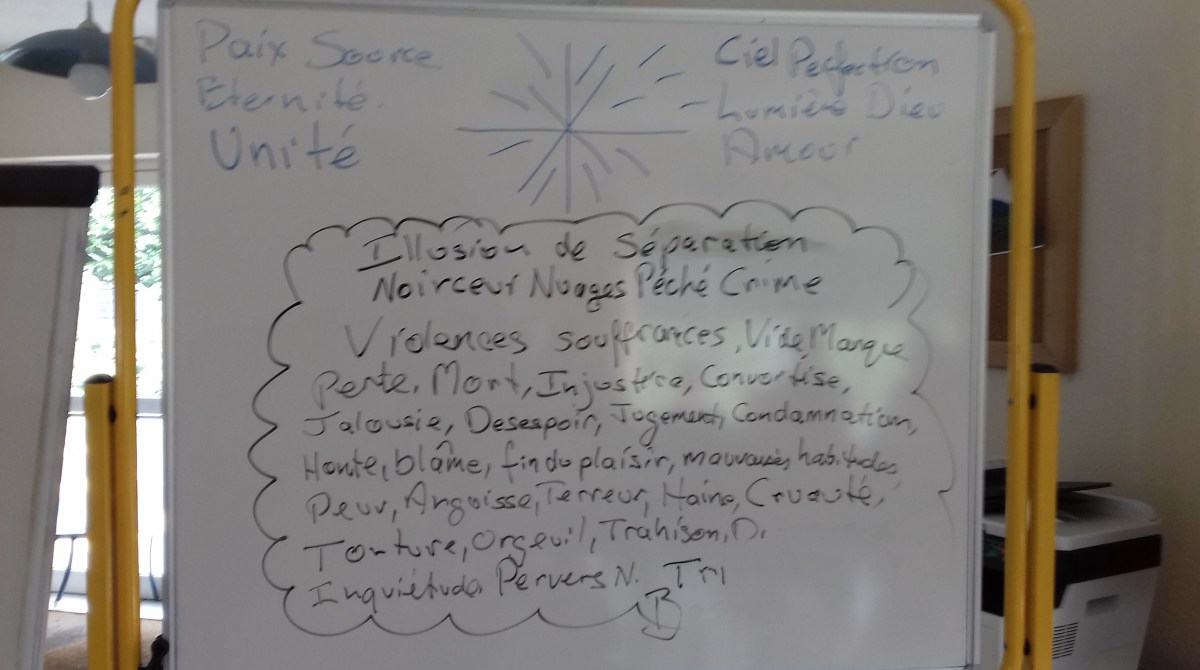 Paix Source
Eternité.
Unité
Ciel Perfection
Lumière Dieu
Amour
Illusion de Séparation
Noirceur Nuages Péché Crime
Violences souffrances, Vide Manque
Perte, Mort, Injustice, Convortise,
Jalousie, Desespoir, Jugement, Condamnation,
Honte, blâme, fin du plaisir, mauvaises habitudes
Peur, Angoisse, Terreur, Haine, Cruauté,
Torture, Orgeuil, Trahison, D.
Inquiétude Pervers N. Tri
B